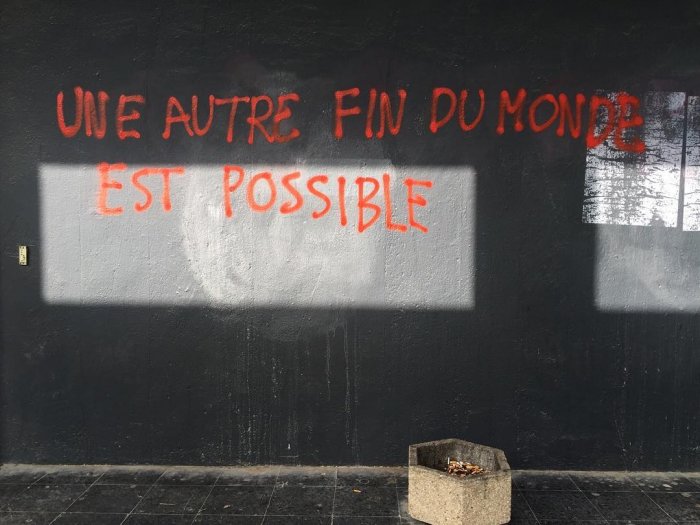 UNE AUTRE FIN DU MONDE
EST POSSIBLE